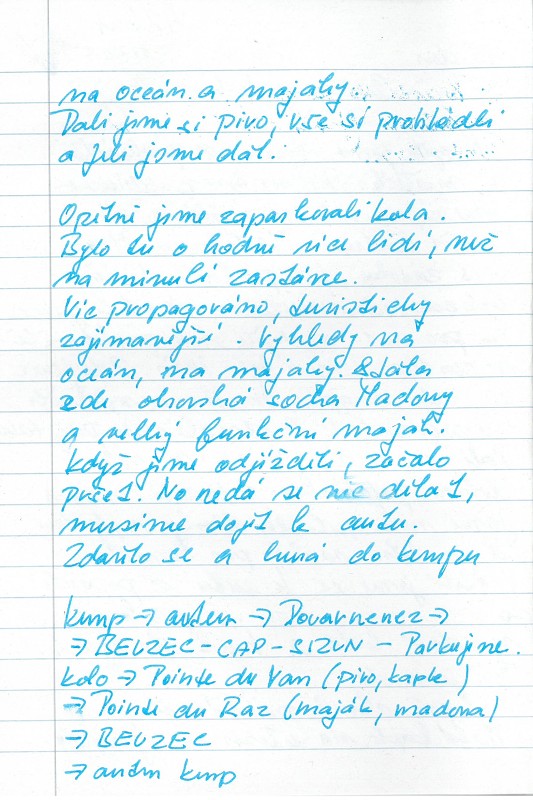 na oceán a majáky.
Dali jsme si pivo, vše si prohlédli
a jeli jsme dál.
Opětně jsme zaparkovali kola.
Bylo tu o hodně více lidí, než
na minulé zastávce.
Víc propagováno, turisticky
zajímavější. Výhledy na
oceán, na majáky. Stála
zde obrovská socha Madony
a velký funkční maják.
Když jsme odjížděli, začalo
pršet. No nedá se nic dělat,
musíme dojít k autu.
Zdařilo se a hurá do kempu
kemp → autem → Douarnenez →
→ BEUZEC-CAP-SIZUN - Parkujeme.
kolo → Pointe du Van (pivo, kaple)
→ Pointe du Raz (maják, madona)
→ BEUZEC
→ autem kemp